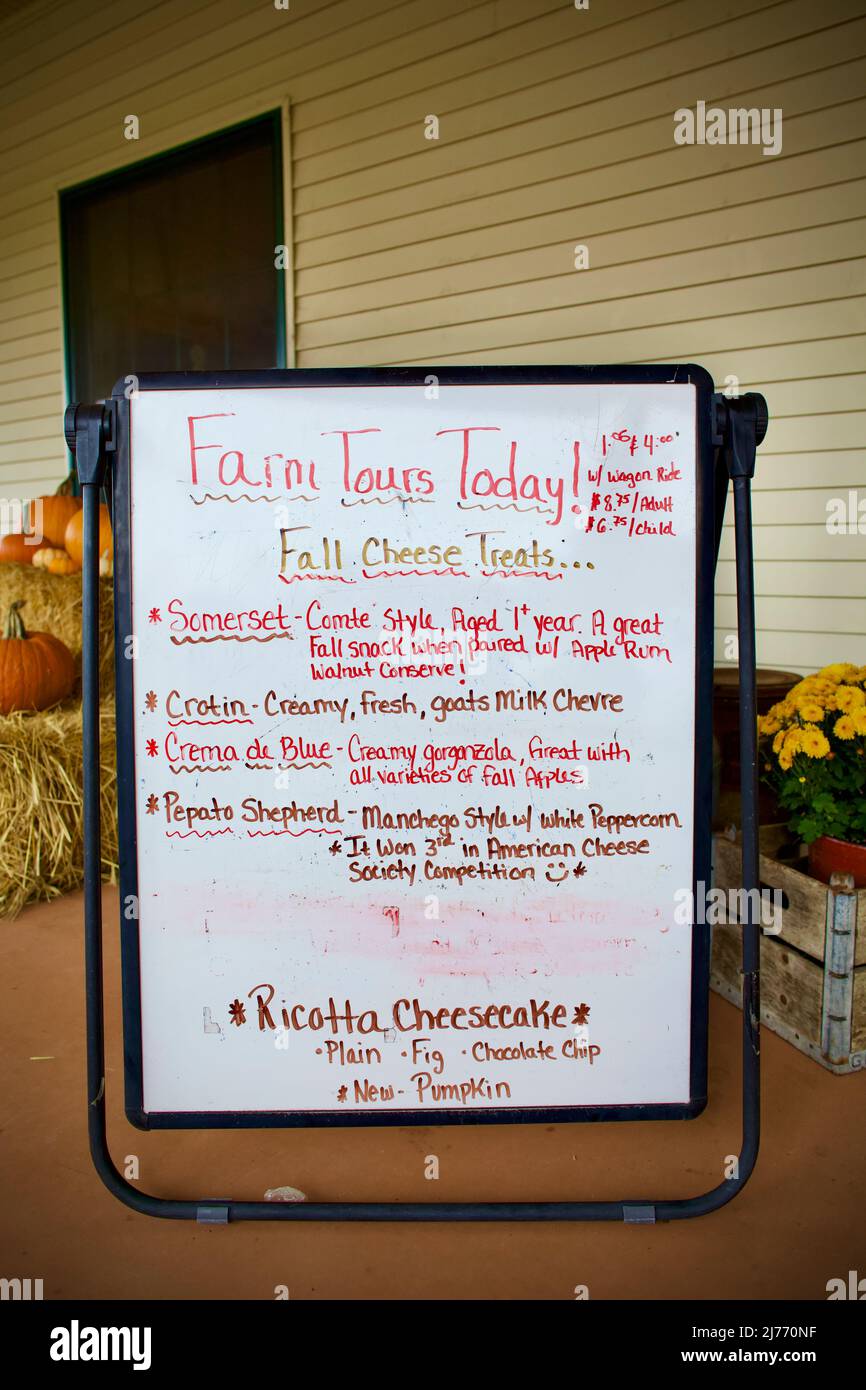 Farm Tours Today!
1:00 & 4:00
w/ Wagon Ride
$8.75/Adult
$6.75/child
Fall Cheese Treats...
* Somerset - Comte Style, Aged 1+ year. A great
Fall snack when paired w/ Apple Rum
Walnut Conserve!
* Crotin - Creamy, Fresh, goats Milk Chevre
* Crema de Blue - Creamy gorgonzola, Great with
all varieties of Fall Apples
* Pepato Shepherd - Manchego Style w/ White Peppercorn
* It Won 3rd in American Cheese
Society Competition *
* Ricotta Cheesecake *
• Plain • Fig • Chocolate Chip
* New - Pumpkin
alamy
Image ID: 2J770NF
www.alamy.com